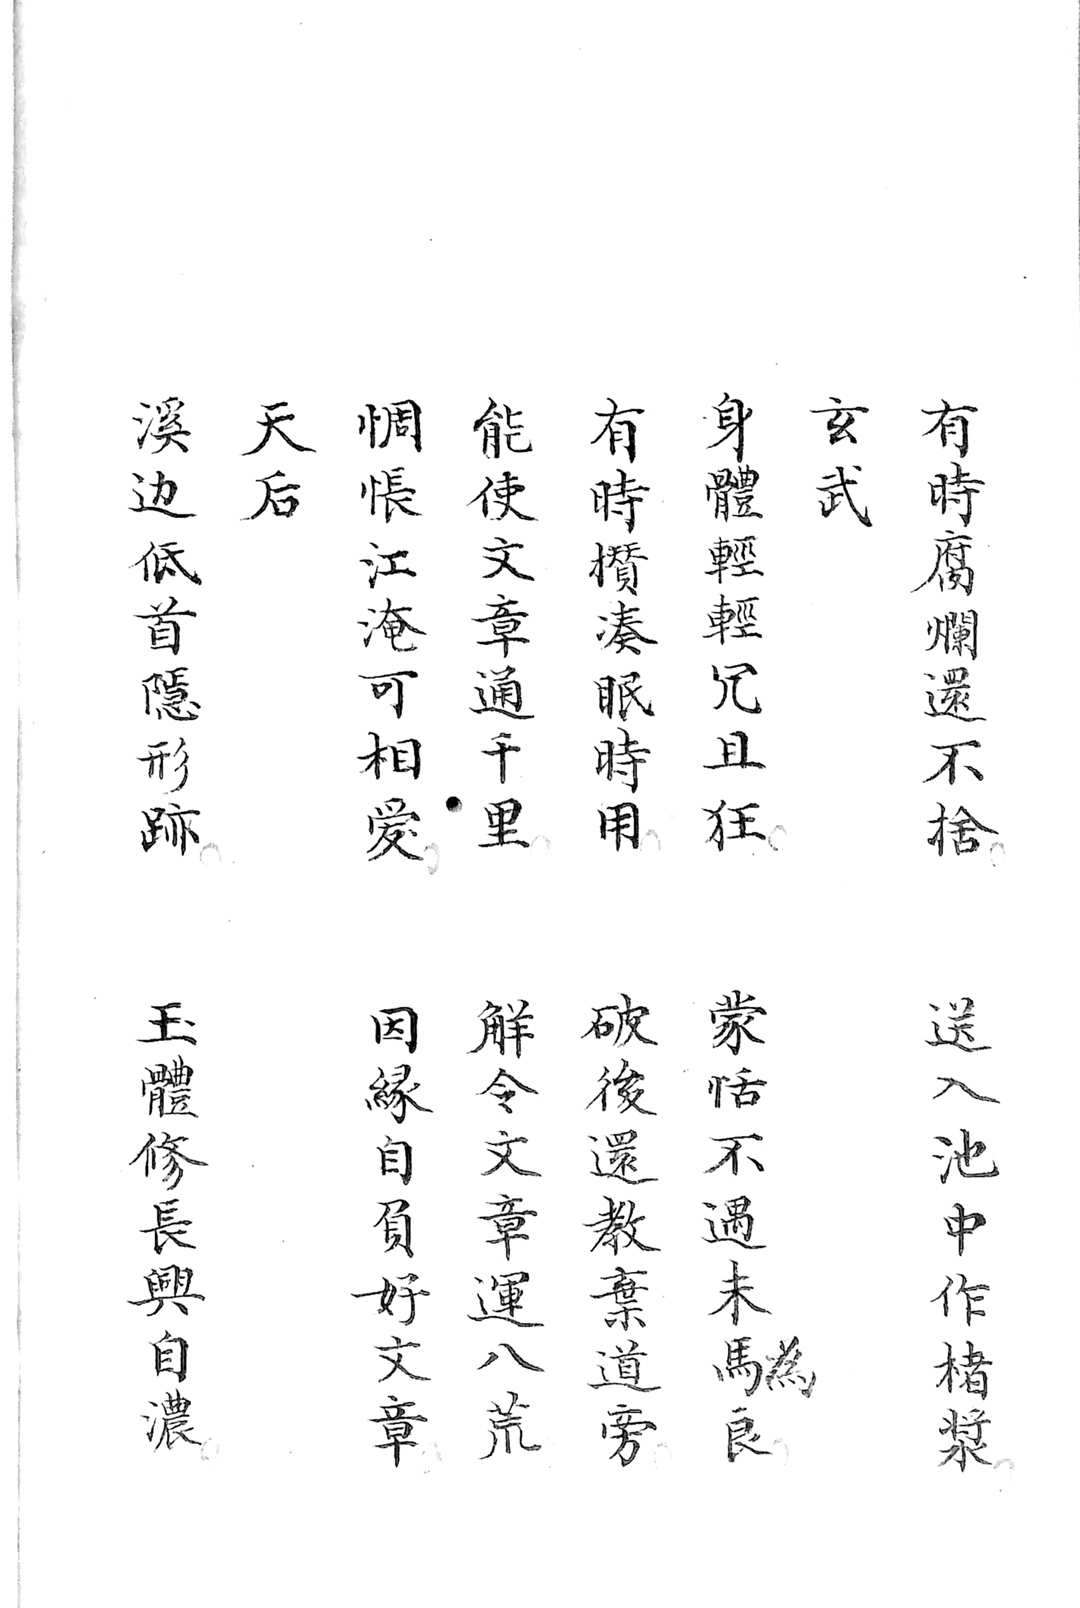 有時腐爛還不捨 送入池中作楮漿
玄武
身體輕輕冗且狂 蒙恬不遇未馬良
為
有時攢湊眠時用 破後還教棄道旁
能使文章通千里 解令文章運八荒
惆悵江淹可相愛 因緣自負好文章
天后
溪边低首隱形跡 玉體修長興自濃